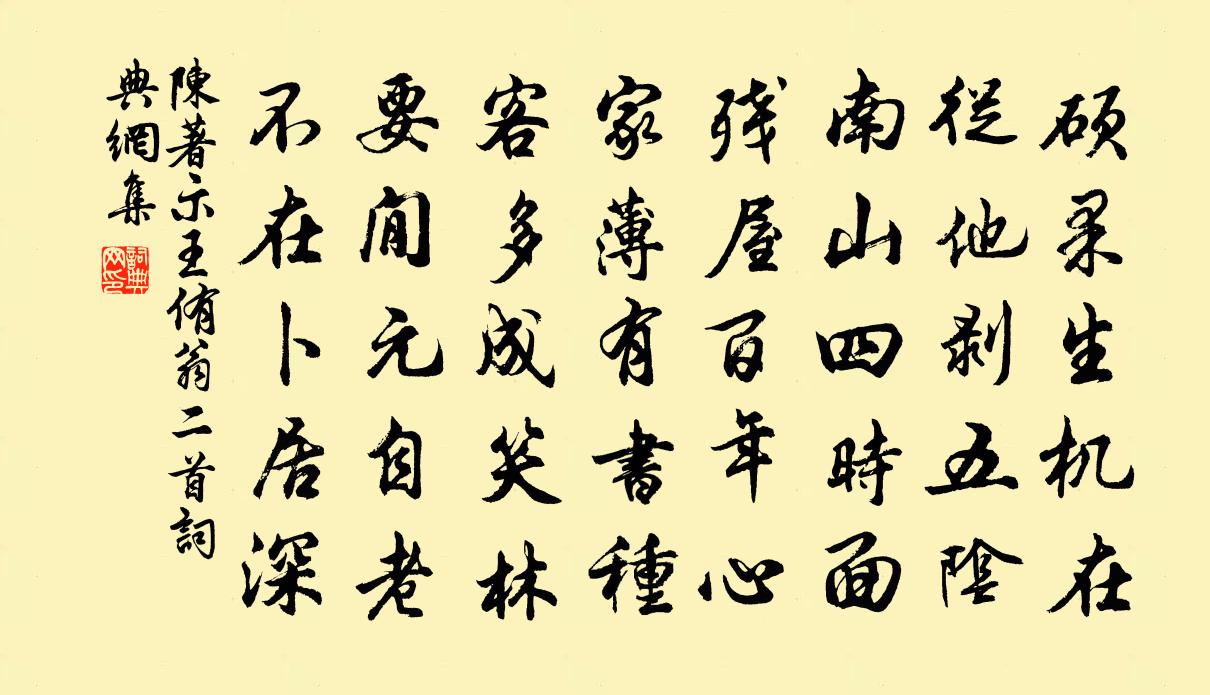 碩果生机在
從他剥五陰
南山四時面
残屋百年心
家薄有書種
客多成笑林
要閒元自老
不在卜居深
陳著示王侑翁二首詞
典網集
詞典網印